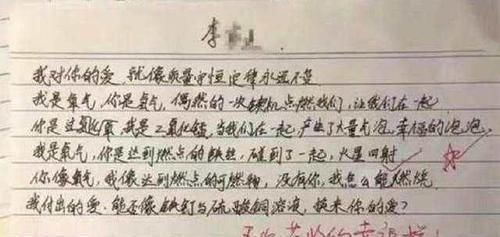 李
我对你的爱,就像质量守恒定律永远不变
我是氧气,你是氢气,偶然的一次 点燃我们,让我们在一起
你是过氧化氢,我是二氧化锰,当我们在一起,产生了大量气泡,幸福的泡泡。
我是氧气,你是达到燃点的铁丝,碰到了一起,火星四射
你像氧气,我像达到燃点的可燃物,没有你,我怎么能燃烧
我付出的爱,能否像铁钉与硫酸铜溶液,换来你的爱?